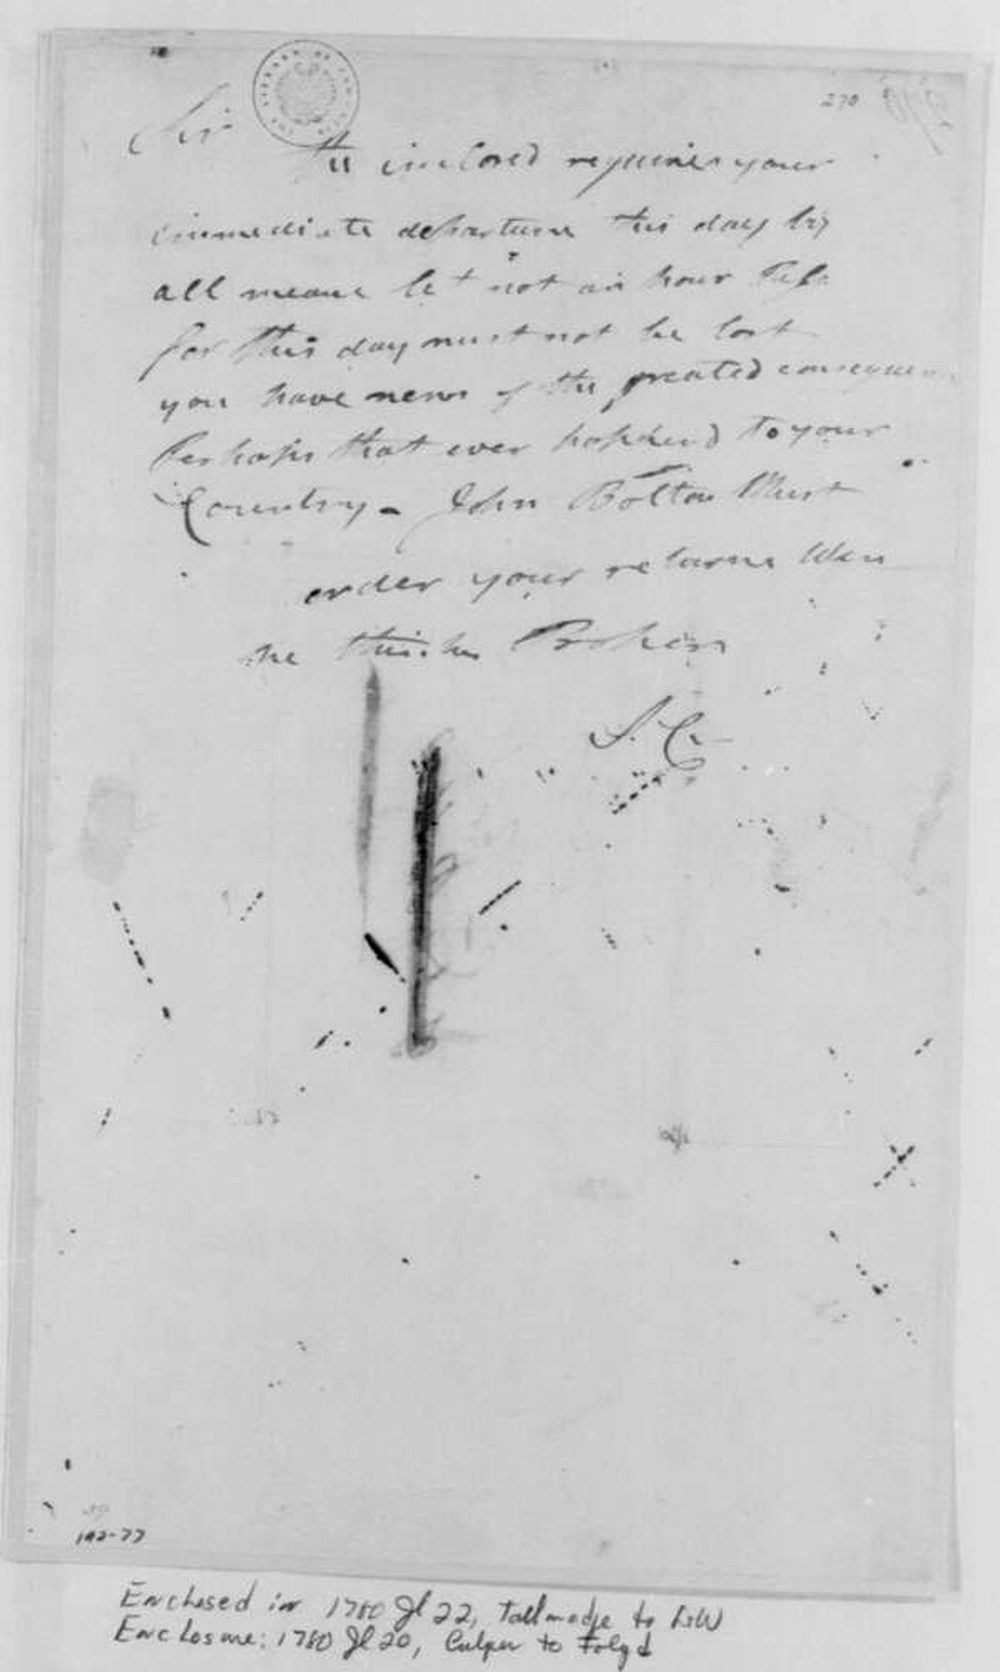 270
Sir
The inclosed requires your
immediate departure this day by
all means let not an hour pass
for this day must not be lost
you have news of the greated consequence
Perhaps that ever happend to your
Country - John Bolton Must
order your returne When
he thinks Proper
S. C.
192-77
Enclosed in 1780 Jl 22, Tallmadge to GW
Enclosure: 1780 Jl 20, Culper to Floyd